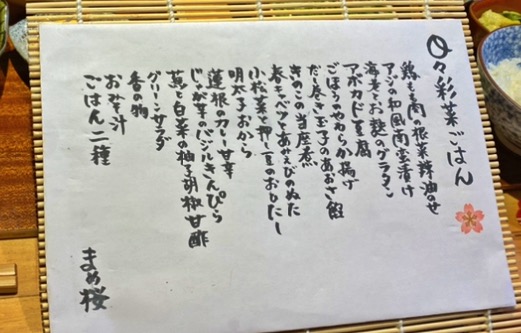 日々彩菜ごはん
鶏もも肉の根菜辣油のせ
アジの和風南蛮漬け
海老とお麩のグラタン
アボカド豆腐
ごぼうのやわらか揚げ
だし巻き玉子のあおさ餡
きのこの当座煮
春キャベツとあみえびのぬた
小松菜と押し豆のおひたし
明太子おから
蓮根のカレー甘辛
じゃが芋のバジルきんぴら
蕪と白菜の柚子胡椒甘酢
グリーンサラダ
香の物
おみそ汁
ごはん二種
まめ桜